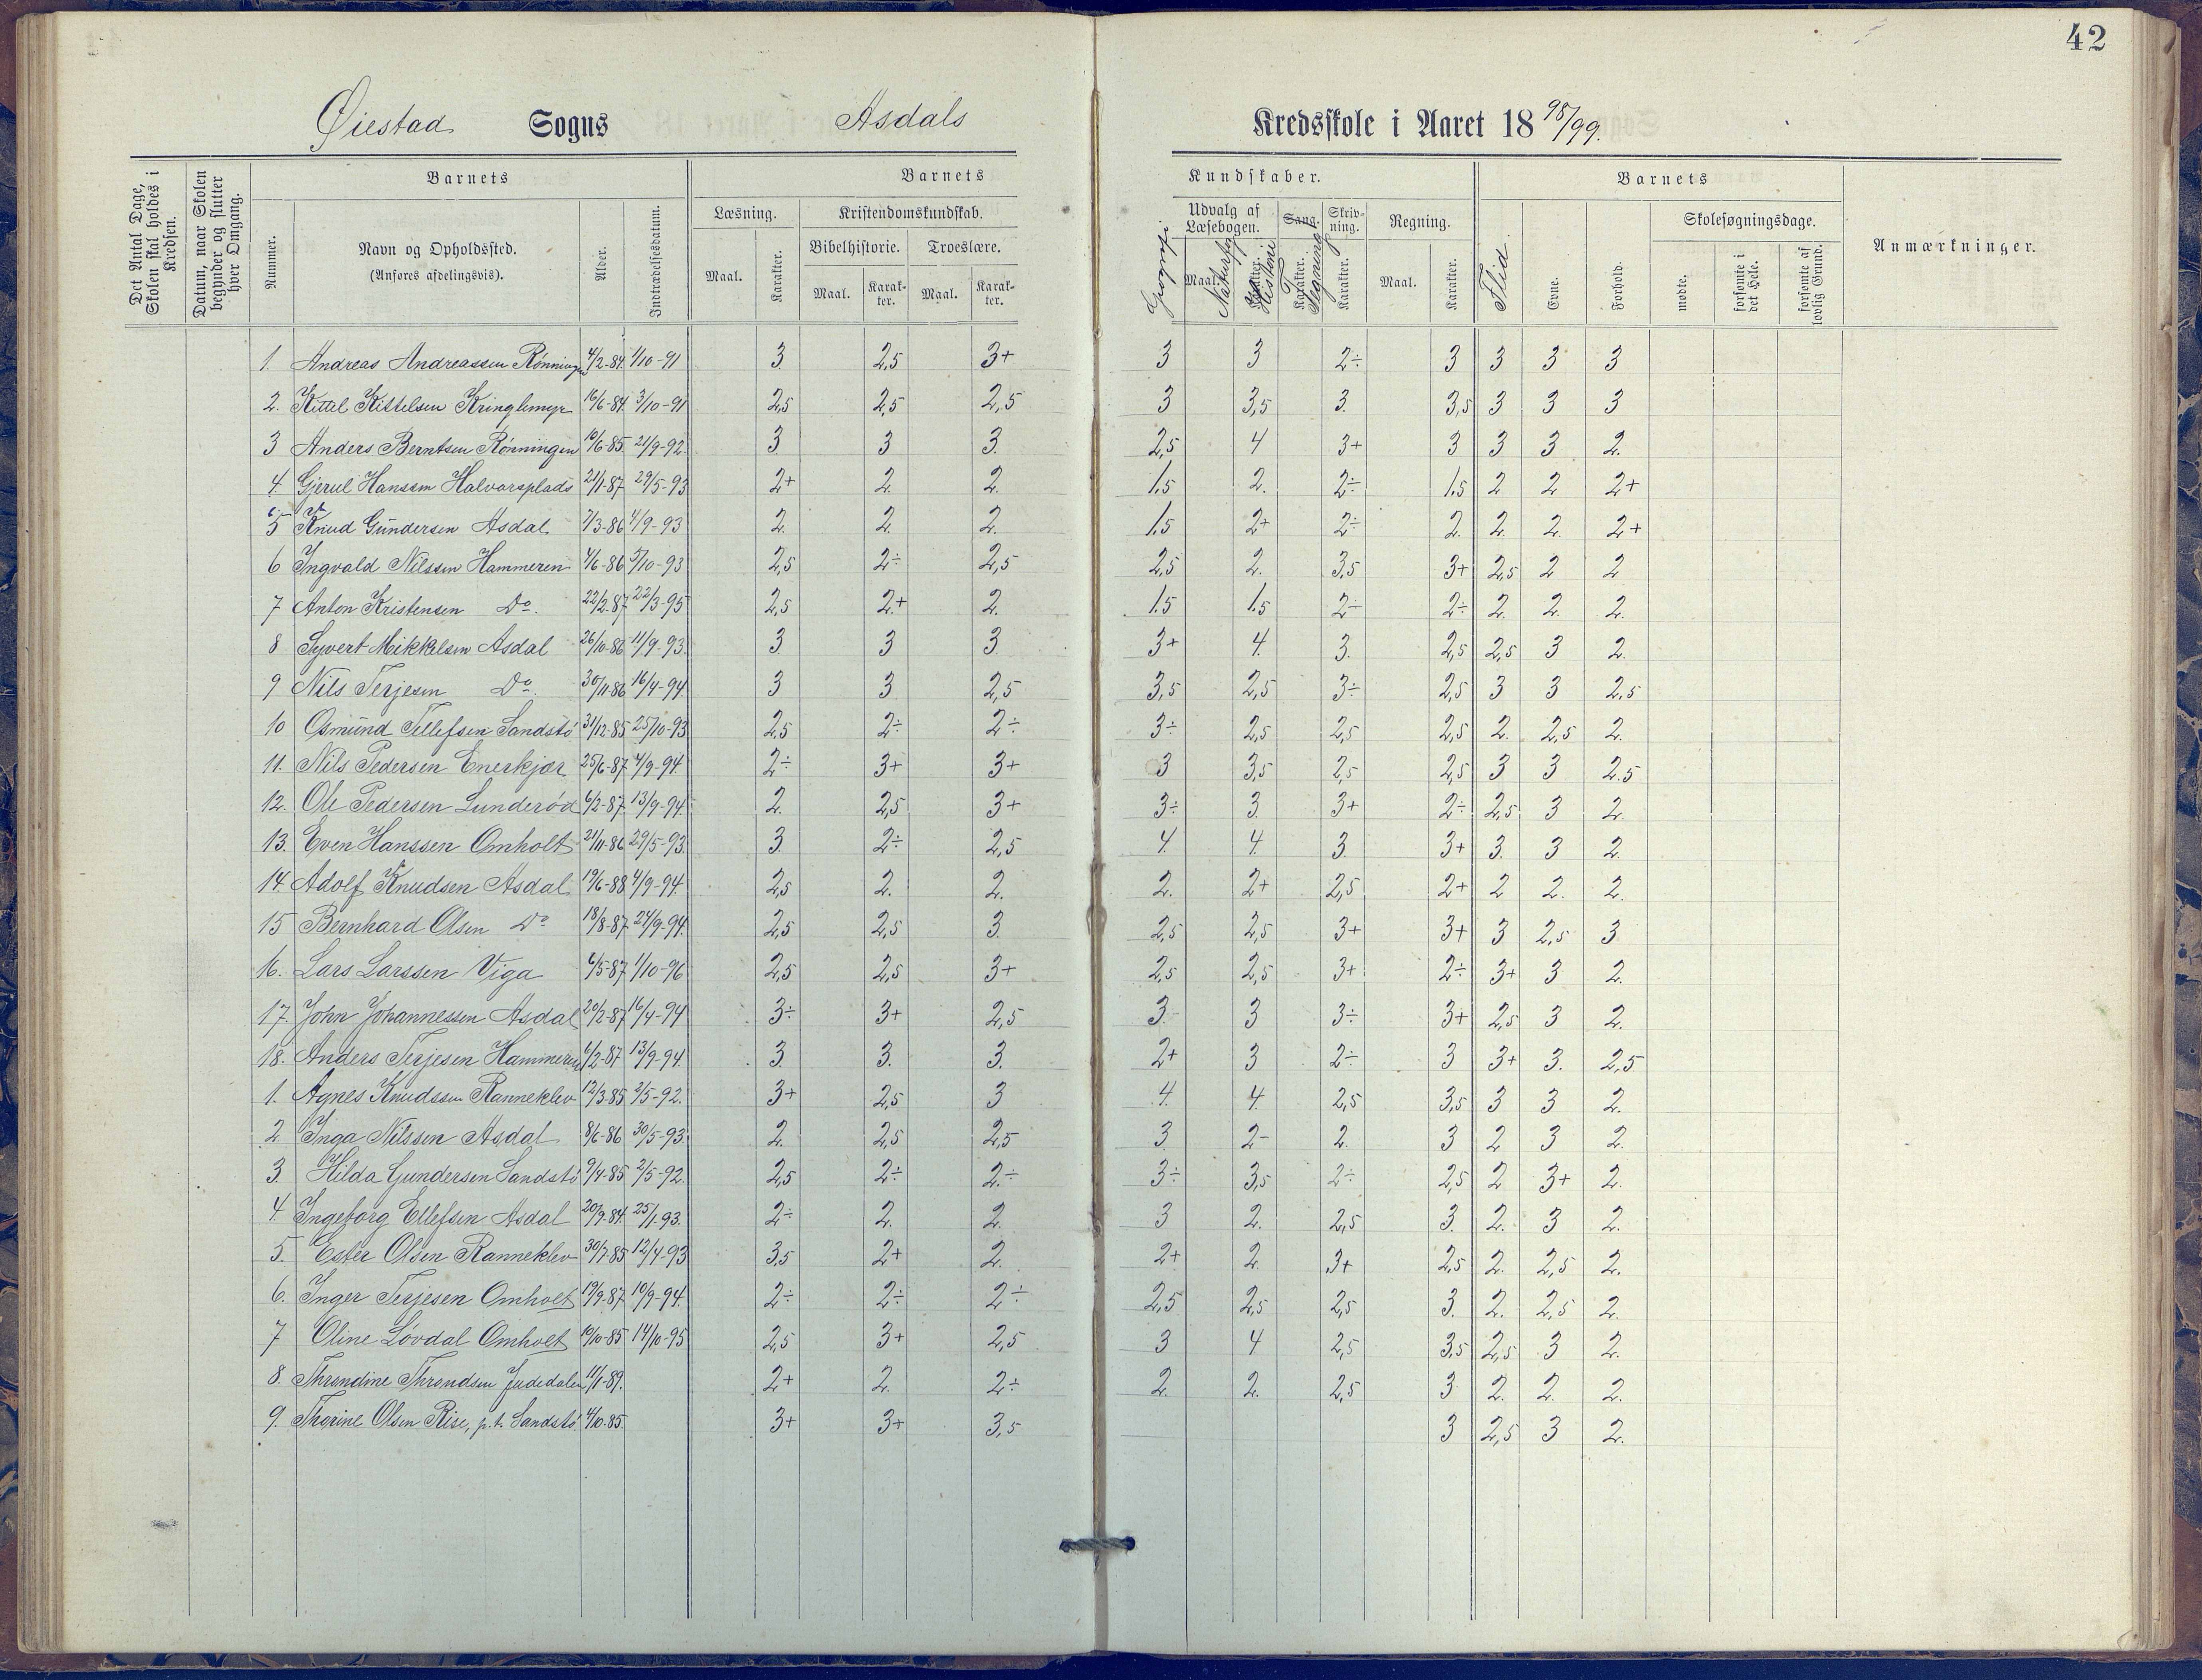 42
Øiestad Sogns Asdals Kredsskole i Aaret 1898/99.
Det Antal Dage, Skolen skal holdes i Kredsen.
Datum, naar Skolen begynder og slutter hver Omgang.
Barnets
Nummer.
Navn og Opholdssted.
(Anføres afdelingsvis).
Alder.
Indtrædelsesdatum.
Barnets Kundskaber.
Læsning.
Maal.
Karakter.
Kristendomskundskab.
Bibelhistorie.
Maal.
Karakter.
Troeslære.
Maal.
Karakter.
Geografi
Udvalg af Læsebogen.
Maal.
Karakter.
Historie
Sang.
Karakter.
Tegning
Skrivning.
Karakter.
Regning.
Maal.
Karakter.
Barnets
Flid
Evne.
Forhold.
Skolesøgningsdage.
mødte.
forsømte i det Hele.
forsømte af lovlig Grund.
Anmærkninger.
1. Andreas Andreassen Rønningen 4/2-84. 1/10-91 3 2,5 3+ 3 3 2÷ 3 3 3 3
2. Kittel Kittelsen Kringlemyr 16/6-84. 3/10-91 2,5 2,5 2,5 3 3,5 3. 3,5 3 3 3
3 Anders Berntsen Rønningen 10/6-85. 21/9-92. 3 3 3. 2,5 4 3+ 3 3 3 2.
4. Gjerul Hanssen Halvorsplads 21/1-87 29/5-93 2+ 2. 2. 1,5 2. 2÷ 1,5 2 2 2+
5 Knud Gundersen Asdal 7/3-86 4/9-93 2. 2. 2. 1,5 2+ 2÷ 2. 2. 2. 2+
6 Ingvald Nilssen Hammeren 4/6-86 5/10-93 2,5 2÷ 2,5 2,5 2. 3,5 3+ 2,5 2 2
7 Anton Kristensen Do. 22/2-87 22/3-95 2,5 2+ 2. 1,5 1,5 2÷ 2÷ 2. 2. 2.
8 Syvert Mikkelsen Asdal 26/10-86 11/9-93. 3. 3 3 3+ 4. 3. 2,5 2,5 3 2.
9 Nils Terjesen Do. 30/11-86 16/4-94. 3 3 2,5 3,5 2,5 3÷ 2,5 3 3 2,5
10 Osmund Tellefsen Sandstø 31/12-85 25/10-93 2,5 2÷ 2÷ 3÷ 2,5 2,5 2,5 2. 2,5 2.
11. Nils Pedersen Enerkjær 25/6-87. 4/9-94. 2÷ 3+ 3+ 3 3,5 2,5 2,5 3 3 2.5
12. Ole Pedersen Lunderød 6/2-87. 13/9-94. 2. 2,5 3+ 3÷ 3. 3+ 2÷ 2,5 3 2.
13. Even Hanssen Omholt 21/11-86 29/5-93. 3. 2÷ 2,5 4 4. 3. 3+ 3. 3 2.
14. Adolf Knudsen Asdal 19/6-88. 4/9-94. 2,5 2. 2. 2. 2+ 2,5 2+ 2 2. 2.
15 Bernhard Olsen Do 18/8-87 24/9-94. 2,5 2,5 3. 2,5 2,5 3+ 3+ 3 2,5 3
16. Lars Larssen Viga 6/5-87 1/10-96 2,5 2,5 3+ 2,5 2,5 3+ 2÷ 3+ 3 2.
17. John Johannessen Asdal 20/2-87 16/4-94 3÷ 3+ 2,5 3. 3 3÷ 3+ 2,5 3 2.
18. Anders Terjesen Hammeren 6/2-87 13/9-94. 3. 3. 3. 2+ 3 2÷ 3 3+ 3. 2,5
1. Agnes Knudssen Ranneklev 12/3-85 2/5-92. 3+ 2,5 3 4. 4. 2,5 3,5 3 3 2.
2 Inga Nilssen Asdal 8/6-86 30/5-93. 2. 2,5 2,5 3 2- 2. 3 2 3 2.
3. Hilda Gundersen Sandstø 9/4-85 2/5-92. 2,5 2÷ 2÷ 3÷ 3,5 2÷ 2,5 2 3+ 2.
4. Ingeborg Ellefsen Asdal 20/9-84. 25/1-93. 2÷ 2. 2. 3 2. 2,5 3. 2. 3 2.
5. Ester Olsen Ranneklev 30/7-85 12/4-93 3,5 2+ 2. 2+ 2. 3+ 2,5 2. 2,5 2.
6. Inger Terjesen Omholt 19/9-87. 10/9-94. 2÷ 2÷ 2÷ 2,5 2,5 2,5 3. 2. 2,5 2.
7 Oline Løvdal Omholt 19/10-85 14/10-95 2,5 3+ 2,5 3 4 2,5 3,5 2,5 3 2.
8. Throndine Throndsen Judedalen 11/1-89. 2+ 2. 2÷ 2. 2. 2,5 3 2. 2. 2.
9. Thorine Olsen Rise, p.t. Sandstø 4/10-85. 3+ 3+ 3,5 3 2,5 3 2.